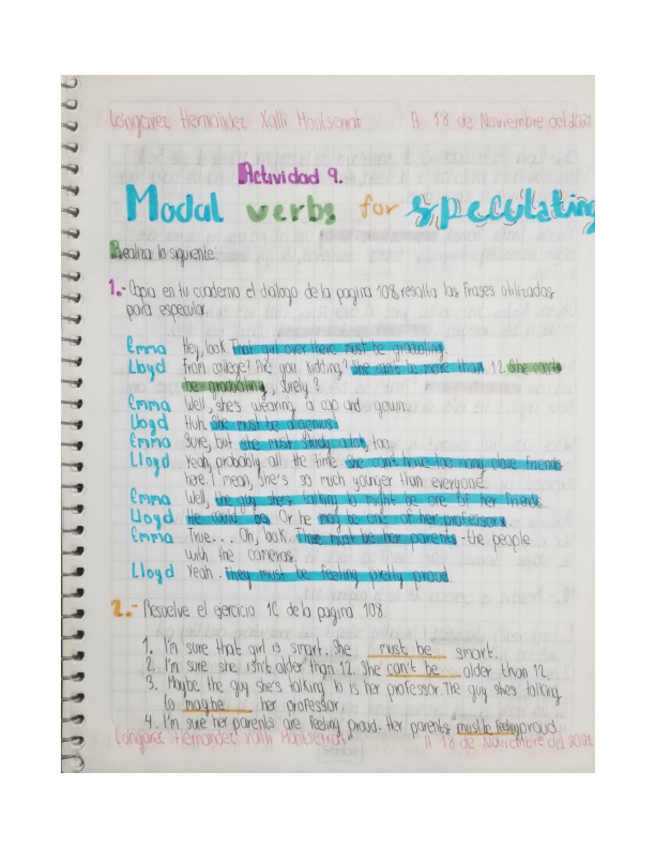 Longarez Hernández Xalli Montserrat. A 18 de Noviembre del 2021
Actividad 9.
Modal verbs for speculating
Realiza lo siguiente:
1.- Copia en tu cuaderno el dialogo de la pagina 108, resalta las frases utilizadas
para especular.
Emma Hey, look. That girl over there must be graduating.
Lloyd From college? Are you kidding? She can't be more than 12. She can't
be graduating, surely?
Emma Well, she's wearing a cap and gown.
Lloyd Huh. She must be a genius.
Emma Sure, but she must study a lot, too.
Lloyd Yeah, probably all the time. She can't have too many close friends
here. I mean, she's so much younger than everyone.
Emma Well, the guy she's talking to might be one of her friends.
Lloyd He could be. Or he may be one of her professors.
Emma True... Oh, look. Those must be her parents - the people
with the cameras.
Lloyd Yeah. They must be feeling pretty proud.
2.- Resuelve el ejercicio 1C de la pagina 108.
1. I'm sure that girl is smart. She must be smart.
2. I'm sure she isn't older than 12. She can't be older than 12.
3. Maybe the guy she's talking to is her professor. The guy she's talking
to maybe her professor.
4. I'm sure her parents are feeling proud. Her parents must be feeling proud.
Longarez Hernández Xalli Montserrat A 18 de Noviembre del 2021